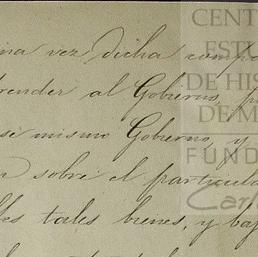 una vez dicha compa
prender al Gobierno, p
ese mismo Gobierno y
n sobre el particula
les tales bienes, y baj
CENT
ESTU
DE HIS
DE M
FUND
Car